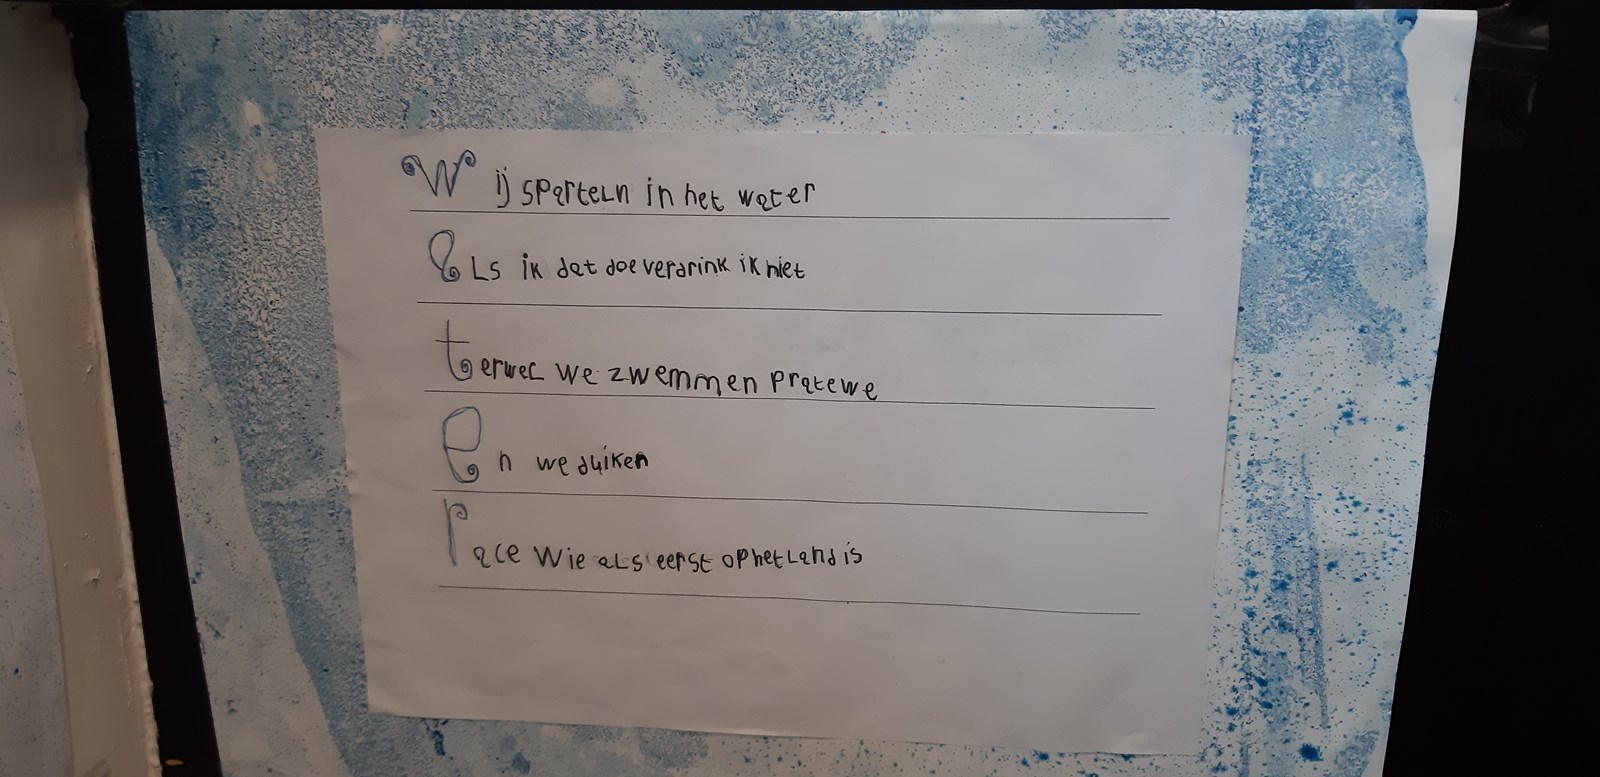 Wij sparteln in het water
als ik dat doe verdrink ik niet
terwel we zwemmen prate we
En we duiken
race wie als eerst op het land is